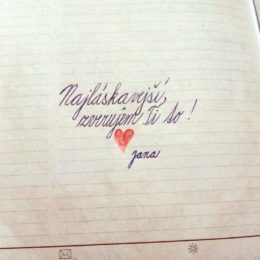 Najláskavejší,
zverujem Ti to!
jana